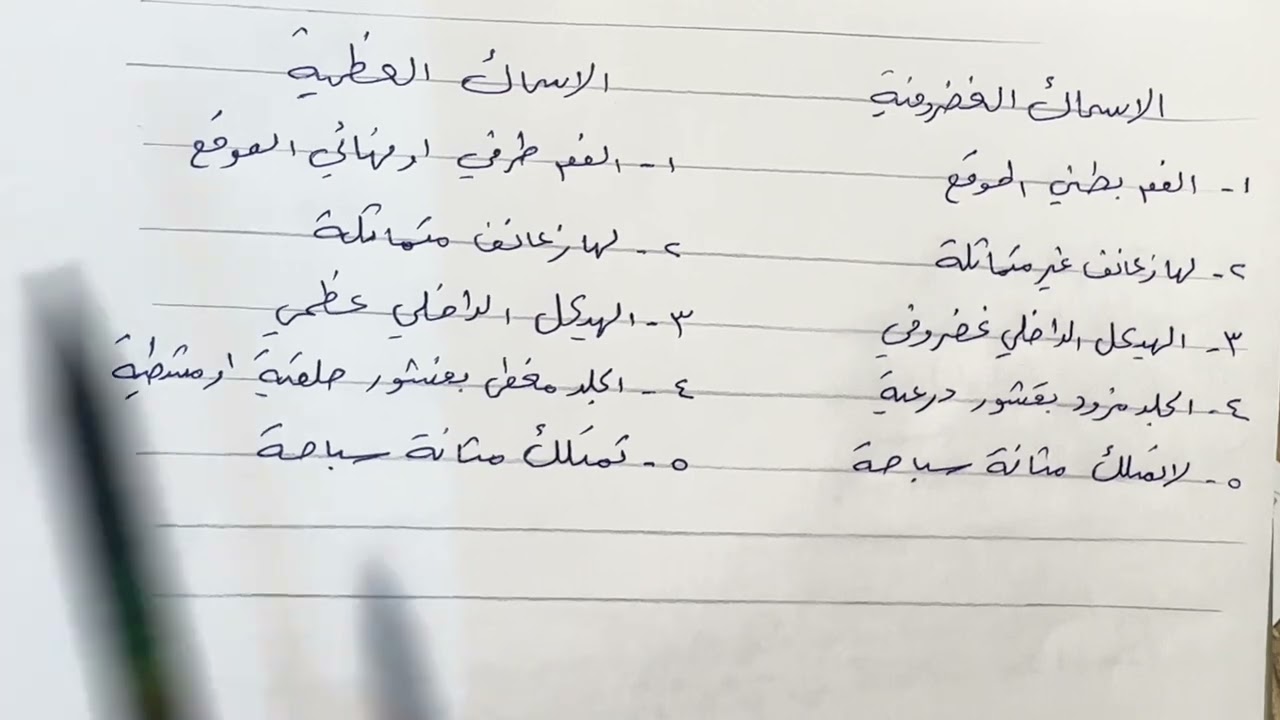 الاسماك الغضروفية
الاسماك العظمية
١- الفم بطني الموقع
١- الفم طرفي او نهائي الموقع
٢- لها زعانف غير متماثلة
٢- لها زعانف متماثلة
٣- الهيكل الداخلي غضروفي
٣- الهيكل الداخلي عظمي
٤- الجلد مزود بقشور درعية
٤- الجلد مغطى بقشور حلقية او مشطية
٥- لاتمتلك مثانة سباحة
٥- تمتلك مثانة سباحة